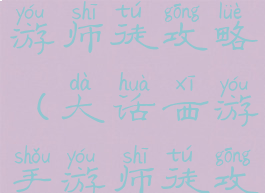 yóu shī tú gōng lüè
游师徒攻略
dà huà xī yóu
（大话西游
shǒu yóu shī tú gōng
手游师徒攻